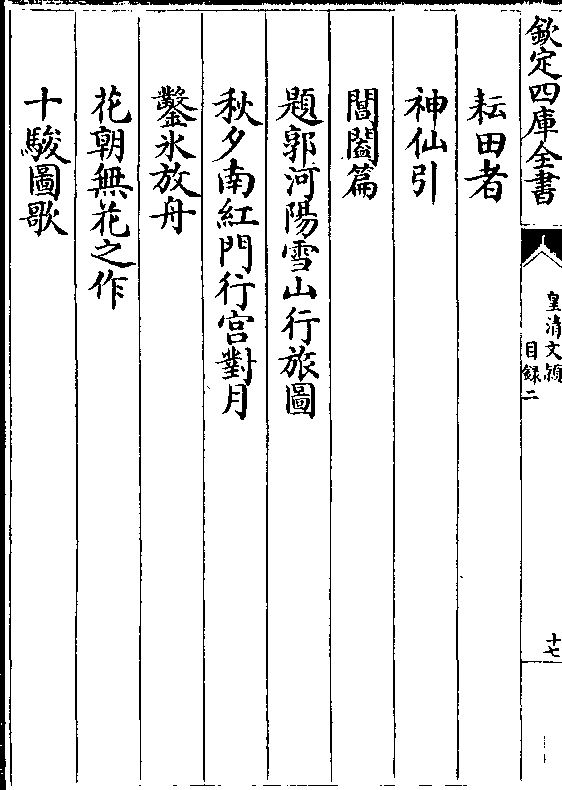 欽定四庫全書
皇清文穎
目録二
十七
耘田者
神仙引
閶闔篇
題郭河陽雪山行旅圖
秋夕南紅門行宫對月
鑿氷放舟
花朝無花之作
十駿圖歌